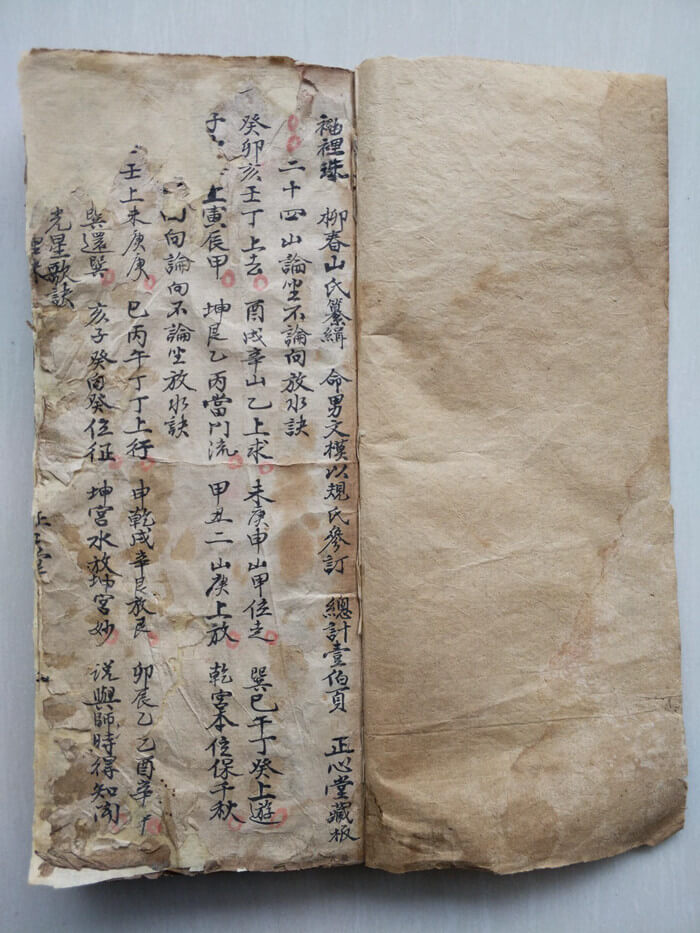 袖裡珠 柳春山氏纂緝 命男文模以規氏參訂 總計壹佰頁 正心堂藏板
二十四山論坐不論向放水訣
癸卯亥壬丁上去 酉戌辛山乙上求 未庚申山甲位走 巽巳午丁癸上遊
子 上寅辰甲 坤艮乙丙當門流 甲丑二山庚上放 乾宮本位保千秋
向論向不論坐放水訣
壬上未庚庚 巳丙午丁丁上行 申乾戌辛艮放艮 卯辰乙乙酉辛
巽還巽 亥子癸向癸位征 坤宮水放坤宮妙 説與師時得知聞
光星歌訣